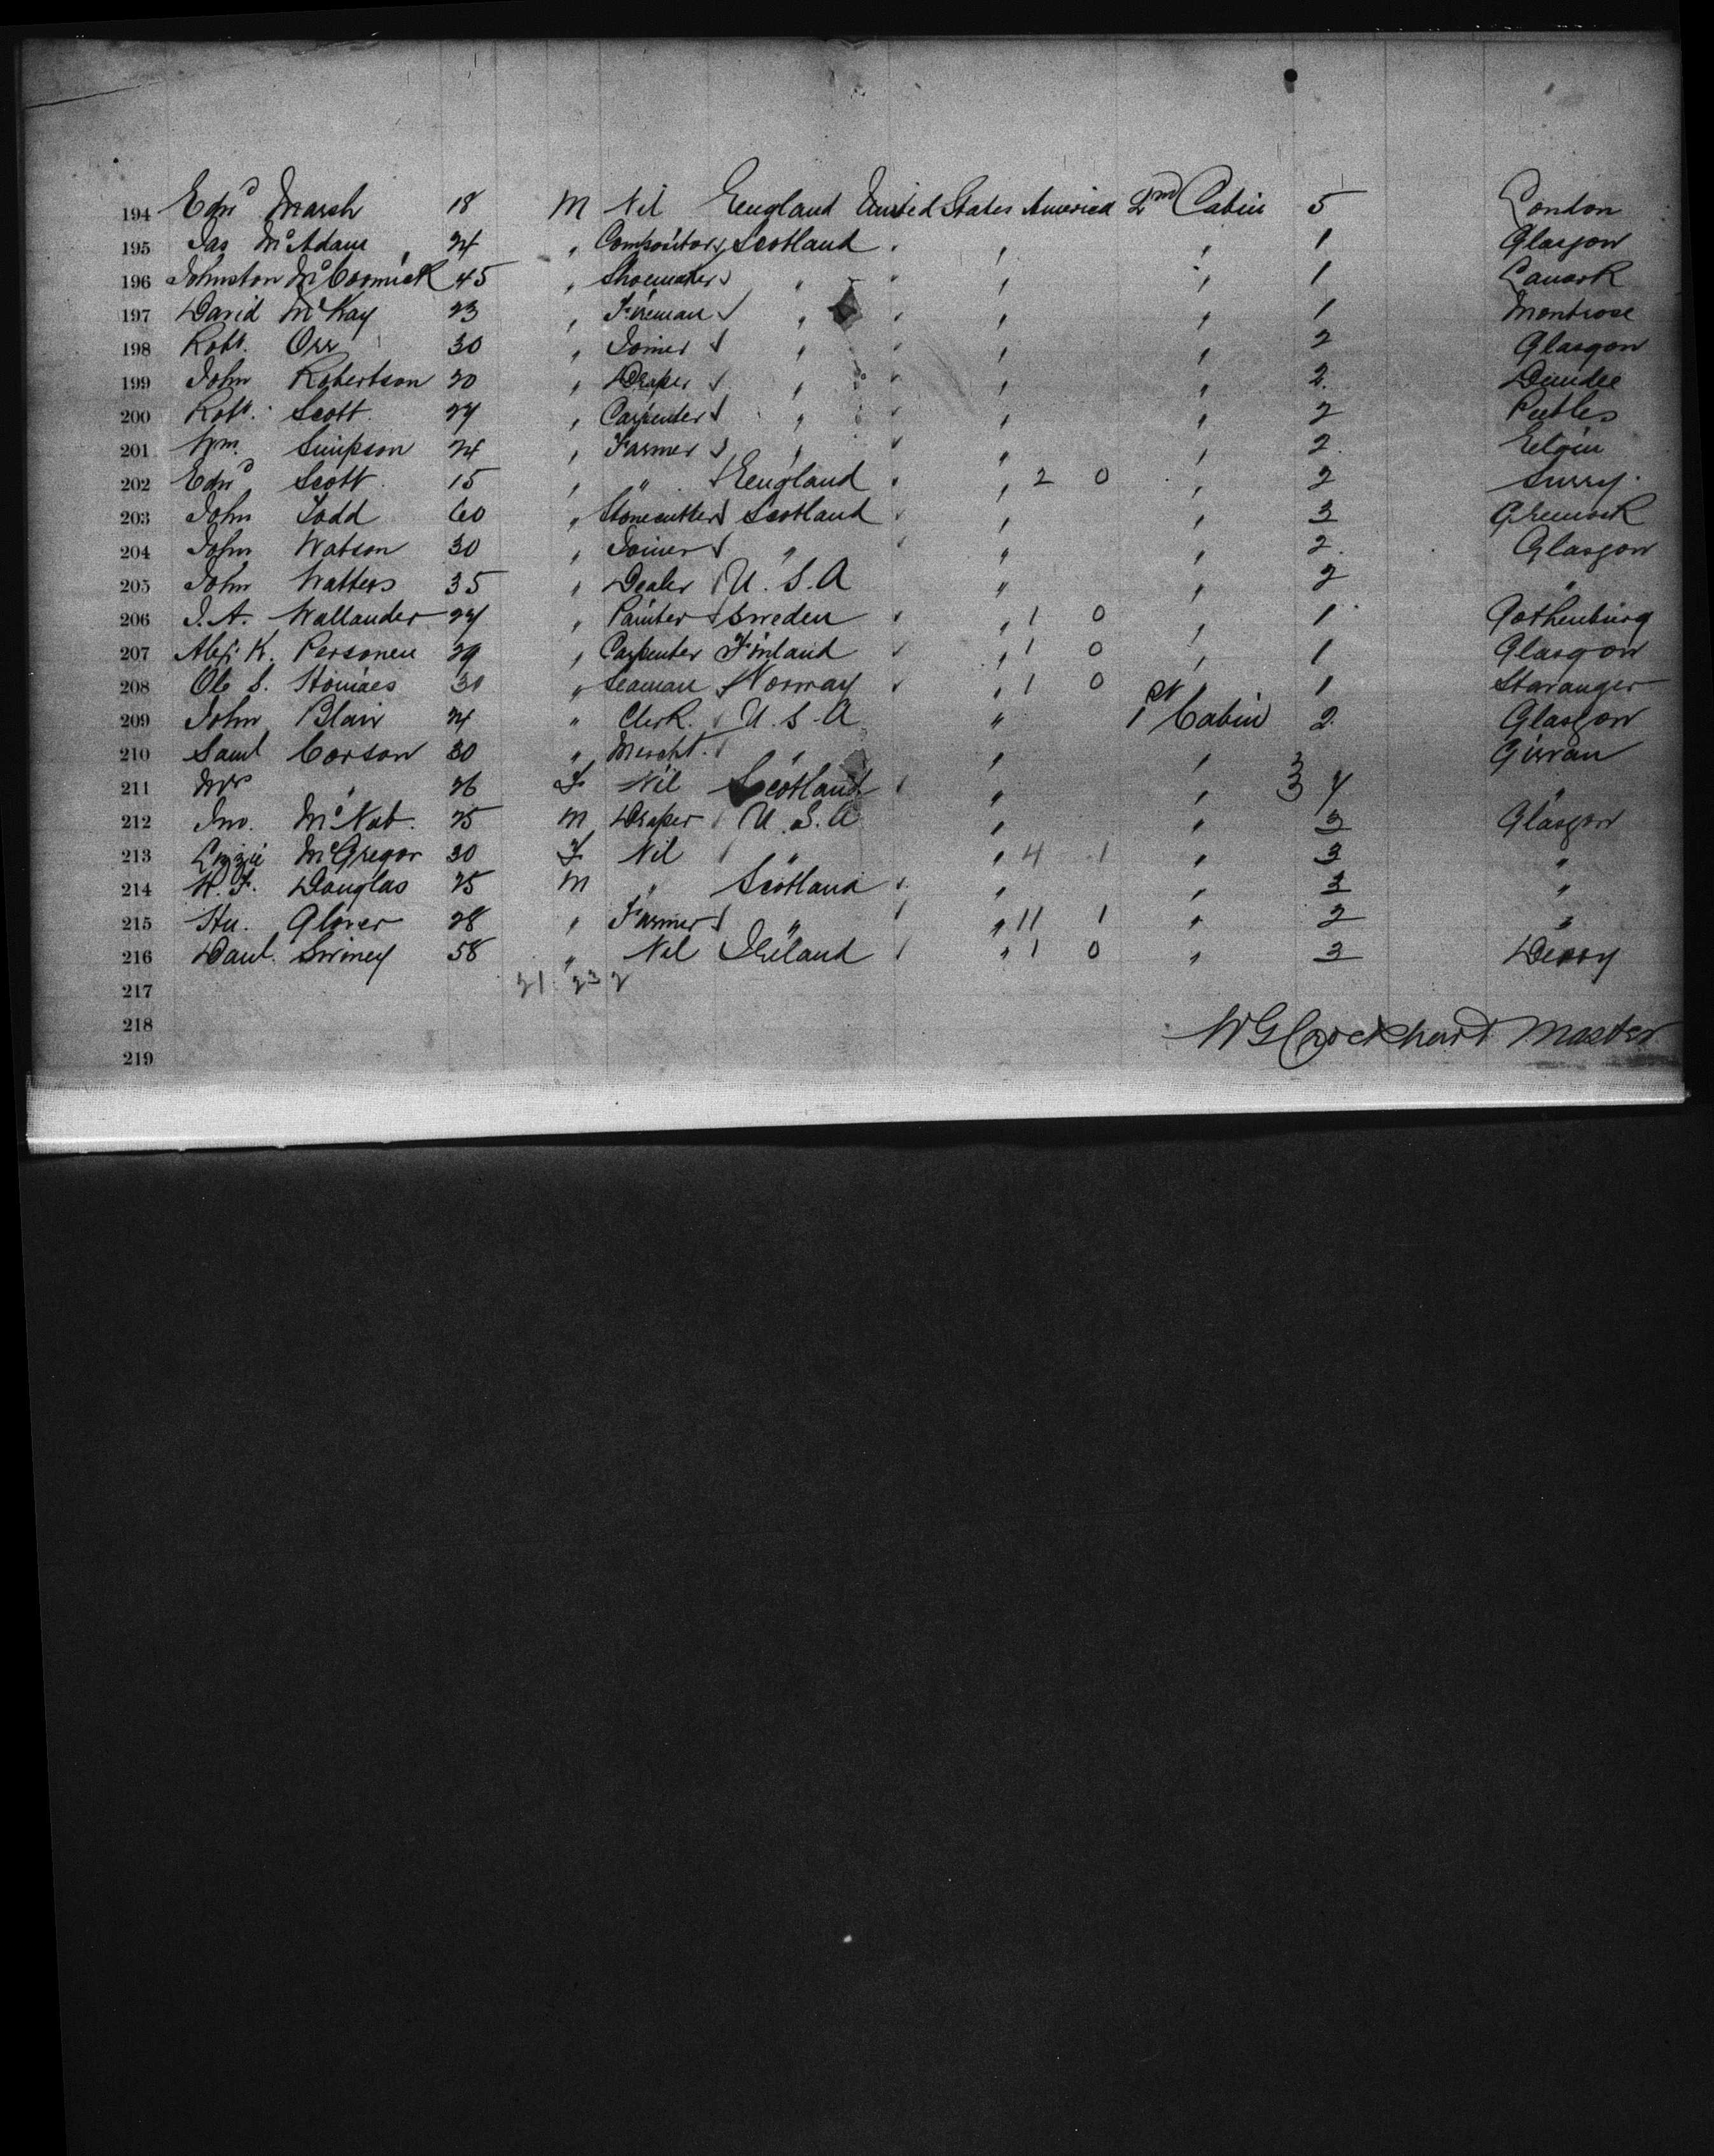 194 Edwd Marsh 18 M Nil England United States America 2nd Cabin 5 London
195 Jas McAdam 24 " Compositor Scotland " " 1 Glasgow
196 Johnston McCormick 45 " Shoemaker " " " " 1 Lanark
197 David McKay 23 " Fireman " " " " 1 Montrose
198 Robt. Orr 30 " Joiner " " " " 2 Glasgow
199 John Robertson 20 " Draper " " " " 2 Dundee
200 Robt. Scott 27 " Carpenter " " " " 2 Peebles
201 Wm. Simpson 24 " Farmer " " " " 2 Elgin
202 Edwd Scott 15 " " England " " 2 0 " 2 Surry
203 John Todd 60 " Stonecutter Scotland " " " 3 Greenock
204 John Watson 30 " Joiner " " " " 2 Glasgow
205 John Watters 35 " Dealer U.S.A " " 2 "
206 J.A. Wallander 24 " Painter Sweden " " 1 0 " 1 Gothenburg
207 Alex K. Personen 29 " Carpenter Finland " " 1 0 " 1 Glasgow
208 Ole S. 31 " Seaman Norway " " 1 0 " 1 Stavanger
209 John Blair 24 " Clerk U.S.A " 1st Cabin 2 Glasgow
210 Saml Corson 30 " Mercht. " " " 3 Girvan
211 Mrs " 26 F Nil Scotland " " 3 4 "
212 Jno. McNab. 25 M Draper U.S.A " " 3 Glasgow
213 Lizzie McGregor 30 F Nil " " 4 1 " 3 "
214 W.F. Douglas 25 M " Scotland " " 3 "
215 Hu. Glover 28 " Farmer " " 11 1 " 2 "
216 Danl. Swiney 58 " Nil Ireland " 1 0 " 3 Derry
217 21 23 2
218
WG Master
219